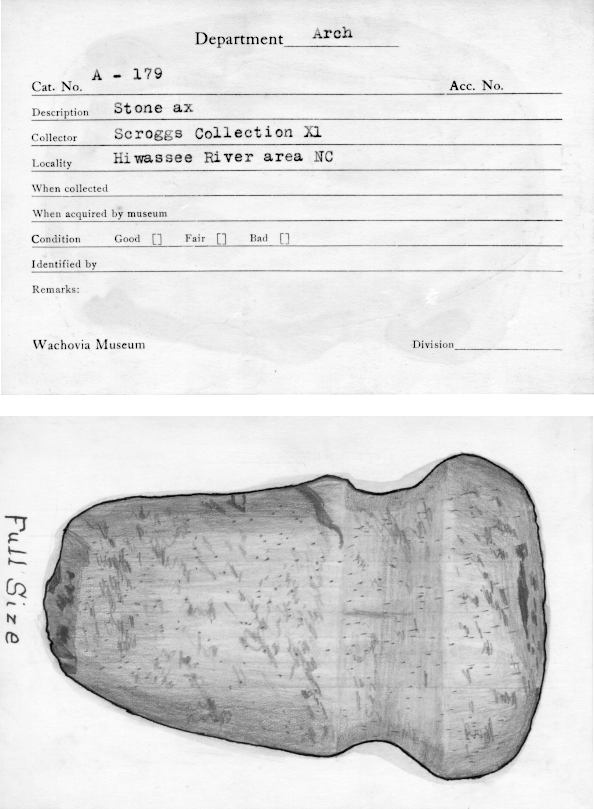 Department Arch
Cat. No. A - 179 Acc. No.
Description Stone ax
Collector Scroggs Collection X1
Locality Hiwassee River area NC
When collected
When acquired by museum
Condition Good [] Fair [] Bad []
Identified by
Remarks:
Wachovia Museum Division
Full Size